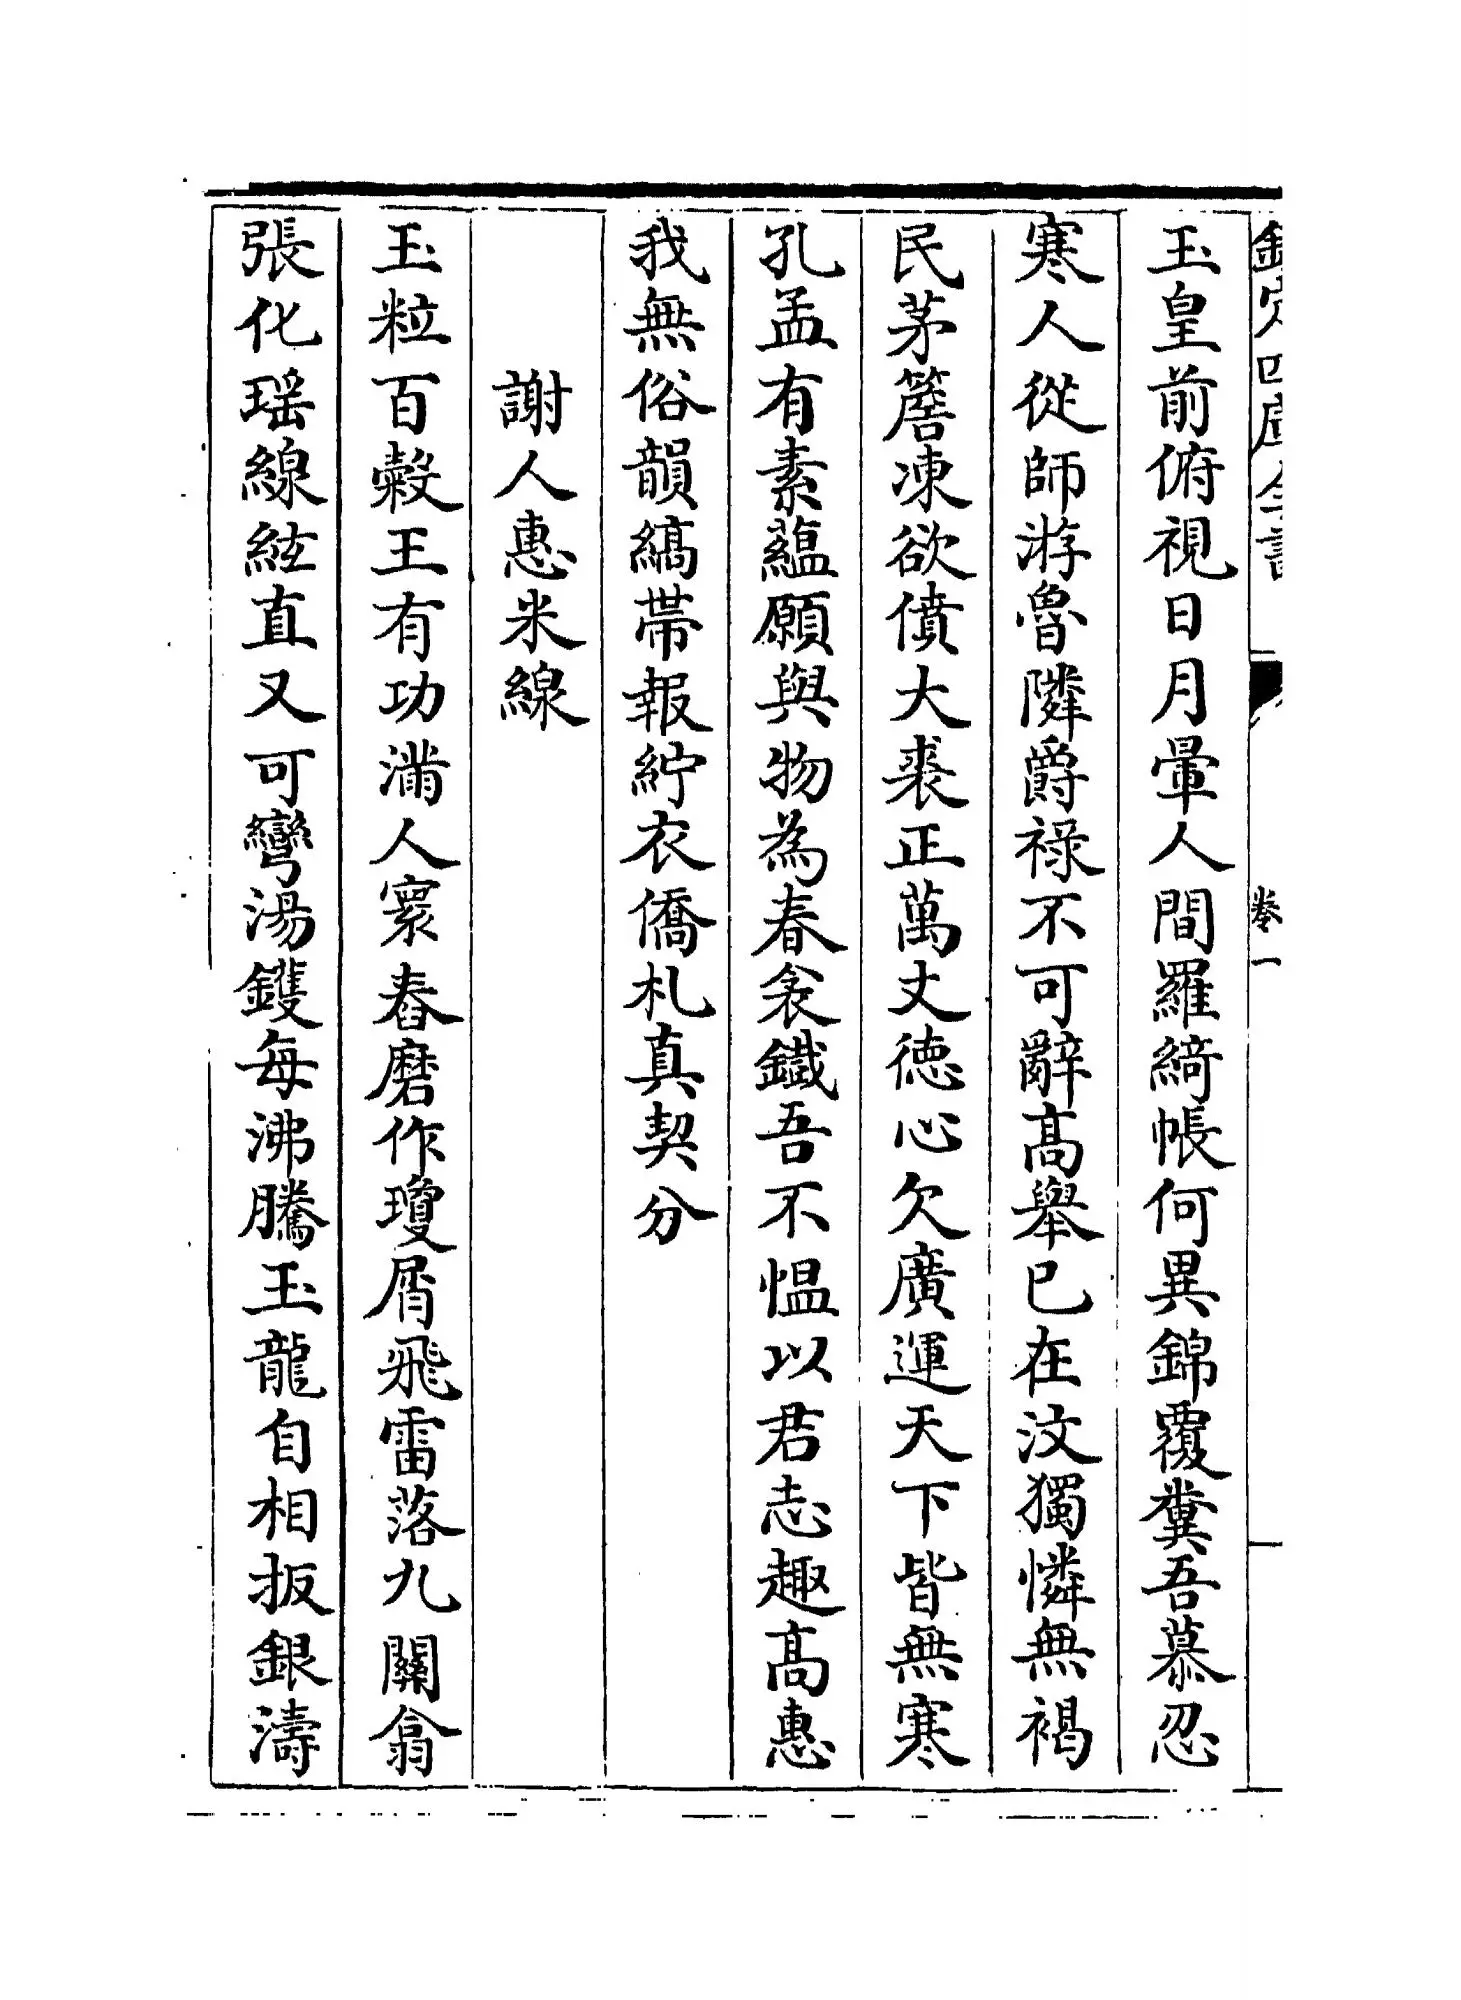 欽定四庫全書
卷一
玉皇前俯視日月暈人間羅綺帳何異錦覆糞吾慕忍
寒人從師游魯隣爵禄不可辭高舉已在汶獨憐無褐
民茅簷凍欲僨大裘正萬丈徳心欠廣運天下皆無寒
孔孟有素藴願與物為春衾鐡吾不愠以君志趣高惠
我無俗韻縞帶報紵衣僑札真契分
謝人惠米線
玉粒百穀王有功滿人寰舂磨作瓊屑飛雷落九關翕
張化瑶線絃直又可彎湯鑊每沸騰玉龍自相扳銀濤